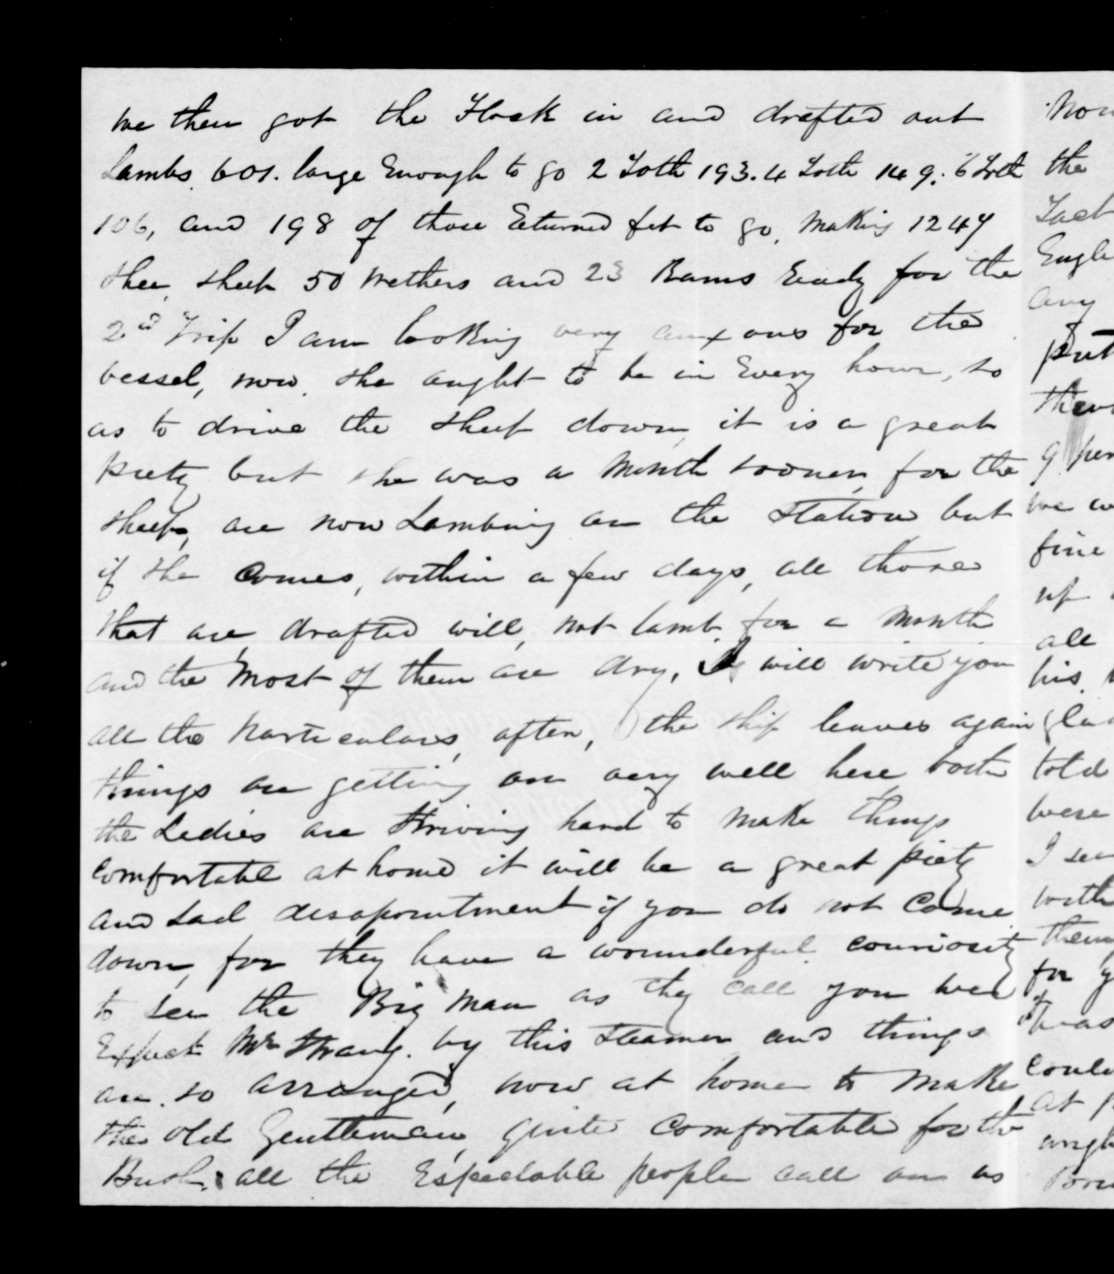 we then got the Flock in and drafted out
Lambs. 601. large Enough to go 2 Toth 193. 4 Toth 149. 6 Toth
106, and 198 of those Eturned fet to go, Making 1247
shee, sheep 50 Wethers and 23 Rams Ready for the
2d Trip I am looking very anxous for the
vessel, now. she aught to be in Every hour, so
as to drive the sheep down, it is a great
piety but she was a Month sooner, for the
sheep, are now Lambing on the Station but
if she Comes, within a few days, all those
that are, drafted will, not lamb for a Month
and the Most of them are dry, I will write you
all the particulars, after, the ship leaves again
things are getting on very well here both
the Ladies are striving hard to Make things
Comfortable at home it will be a great piety
and sad disapointment if you do not Come
down, for they have a wounderful couriosity
to see the Big Man as they call you wee
Expect Mr Strang. by this steamer and things
are so arranged, now at home to Make
the old Gentleman, quite Comfortable for the
Bush. all the Espectable people call on us
the
any
put
fine
all
his
told
were
with
them
for
at